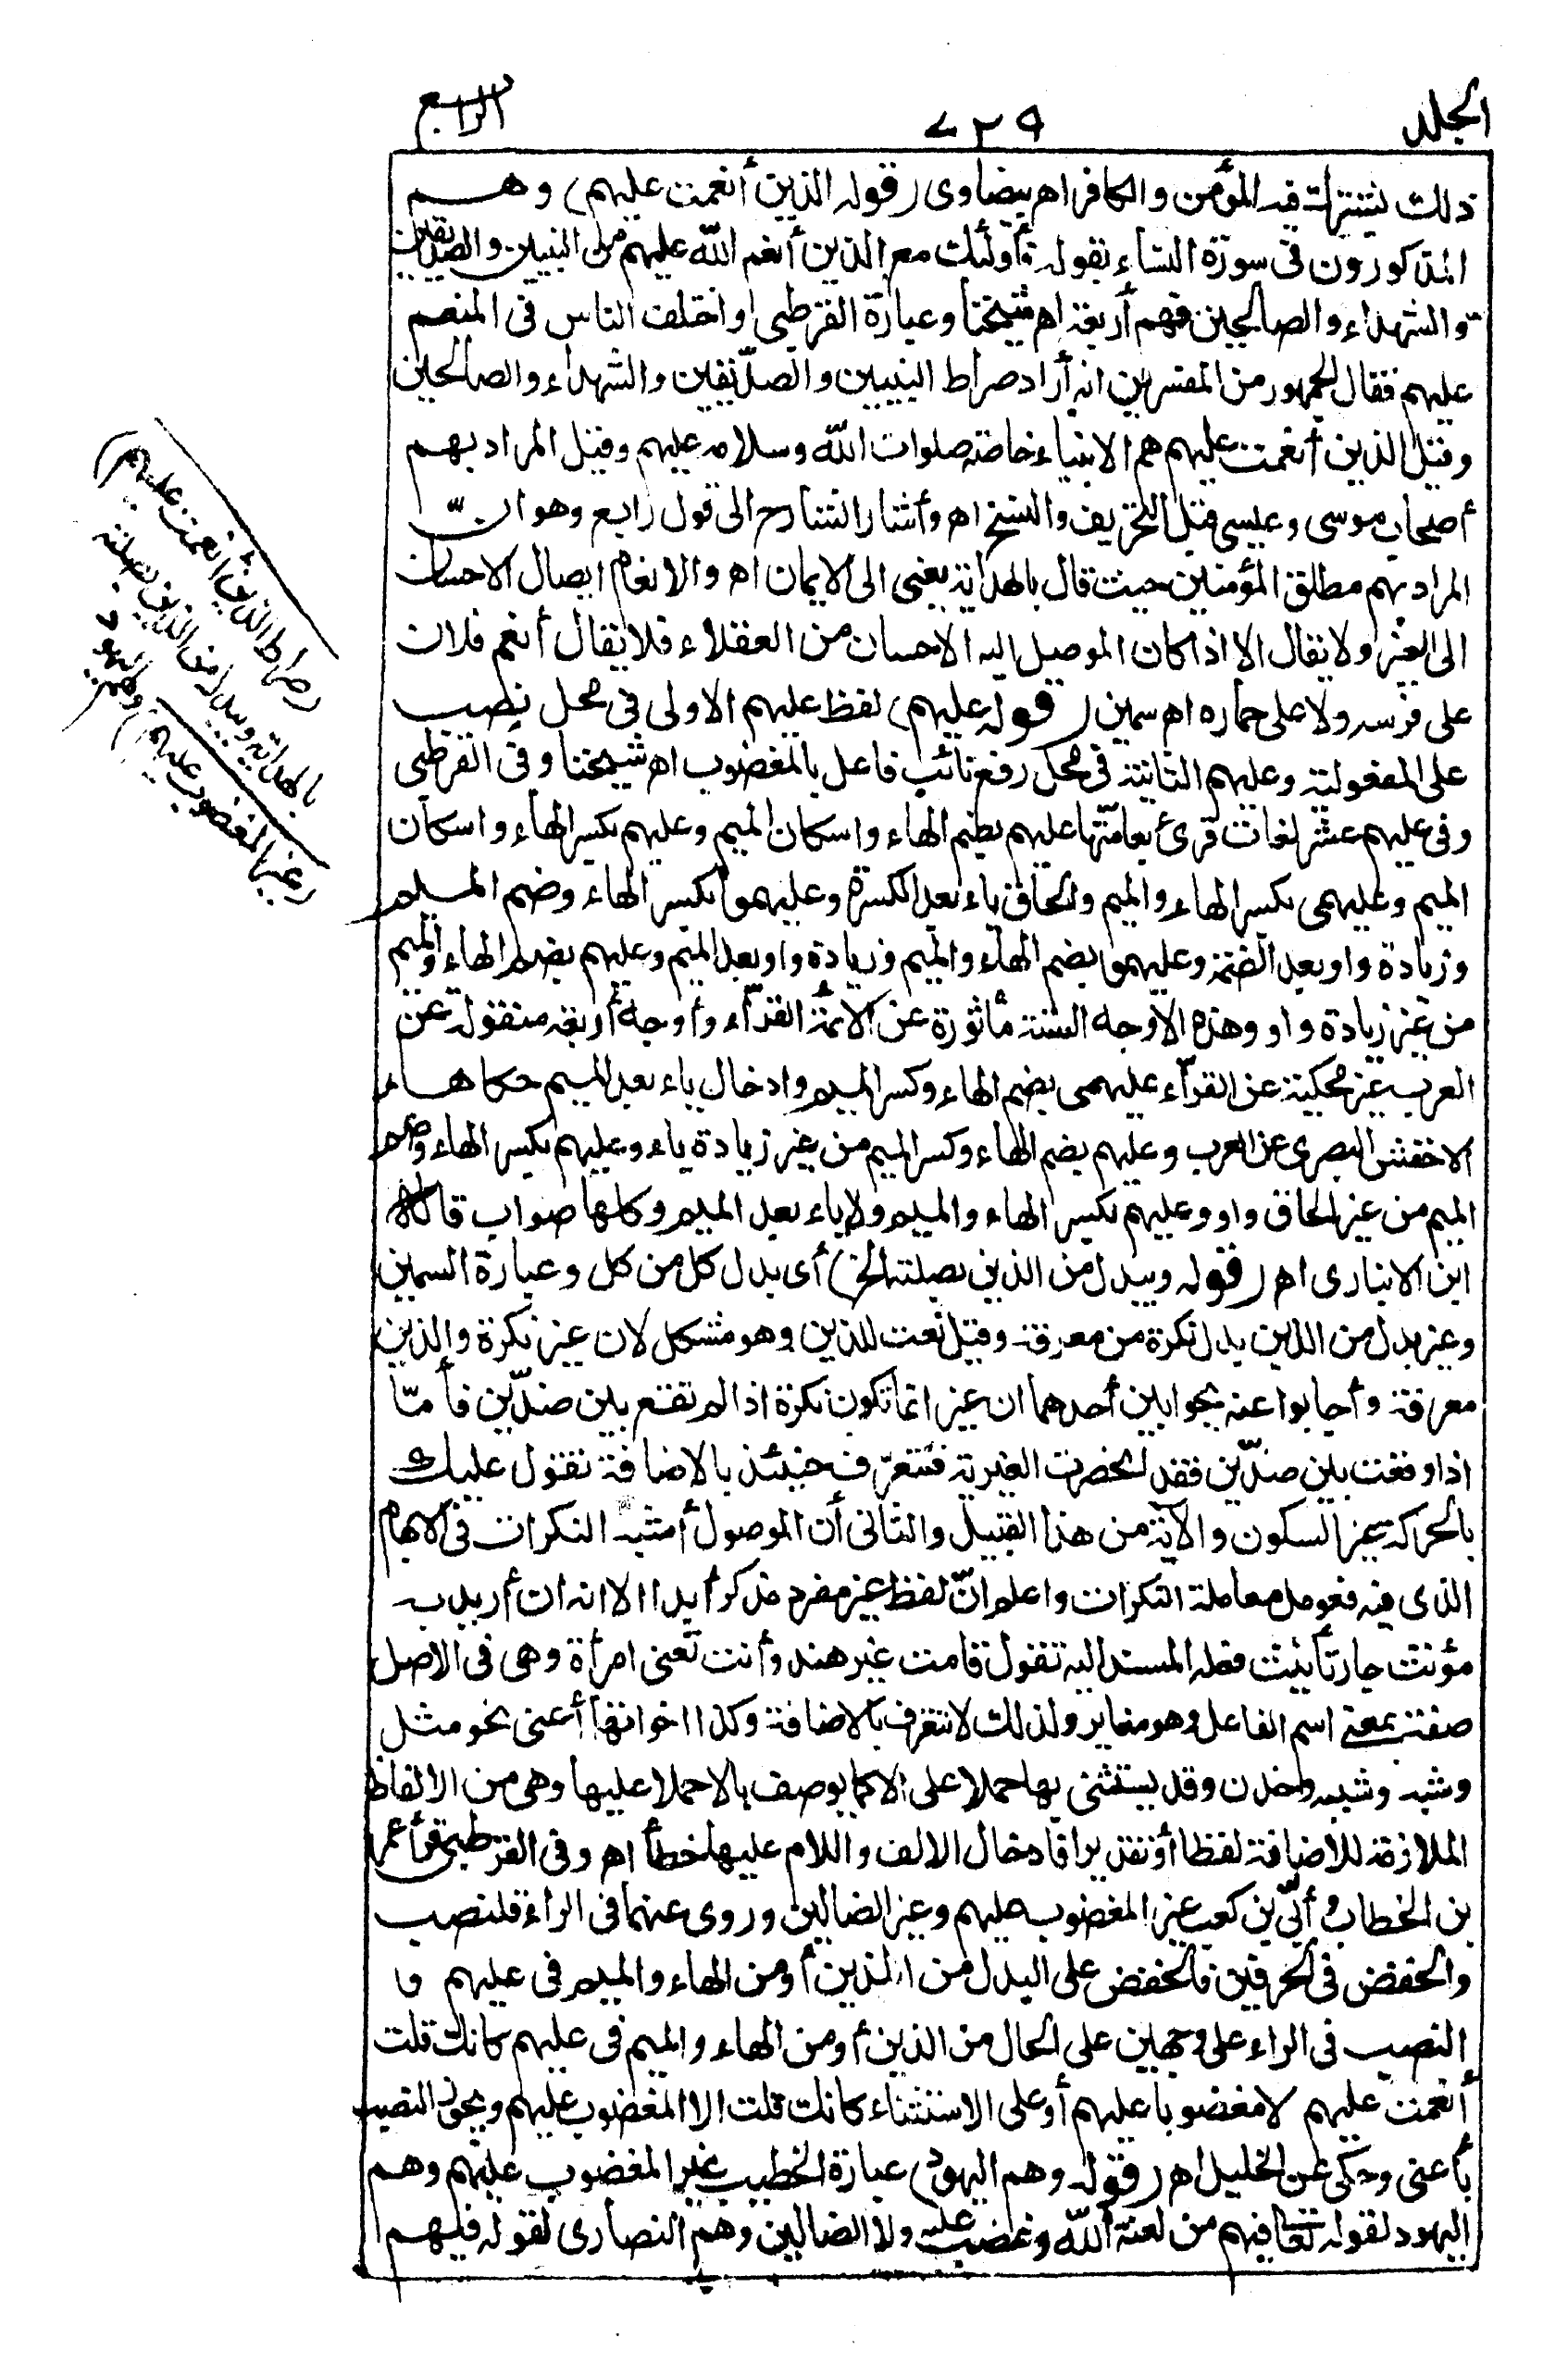 الجلد
٧٢٩
الرابع
ذلك يشترك فيه المؤمن والكافر اهـ بيضاوى (قوله الذين أنعمت عليهم) وهم
المذكورون فى سورة النساء بقوله فأولئك مع الذين أنعم الله عليهم من النبيين والصديقين
والشهداء والصالحين فهم أربعة اهـ شيخنا وعبارة القرطبى واختلف الناس فى المنعم
عليهم فقال الجمهور من المفسرين انه أراد صراط النبيين والصدّيقين والشهداء والصالحين
وقيل الذين أنعمت عليهم هم الانبياء خاصة صلوات الله وسلامه عليهم وقيل المراد بهم
أصحاب موسى وعيسى قبل التحريف والنسخ اهـ وأشار الشارح الى قول رابع وهو انّ
المراد بهم مطلق المؤمنين حيث قال بالهداية يعنى الى الايمان اهـ والانعام ايصال الاحسان
الى الغير ولا يقال الا اذا كان الموصل اليه الاحسان من العقلاء فلا يقال أنعم فلان
على فرسه ولا على حماره اهـ سمين (قوله عليهم) لفظ عليهم الاولى فى محل نصب
على المفعولية وعليهم الثانية فى محل رفع نائب فاعل بالمغضوب اهـ شيخنا وفى القرطبى
وفى عليهم عشر لغات قرئ بعامّتها عليهم بضم الهاء واسكان الميم وعليهم بكسر الهاء واسكان
الميم وعليهمى بكسر الهاء والميم والحاق ياء بعد الكسرة وعليهموا بكسر الهاء وضم الميم
وزيادة واو بعد الضمة وعليهموا بضم الهاء والميم وزيادة واو بعد الميم وعليهم بضم الهاء والميم
من غير زيادة واو وهذه الاوجه الستة مأثورة عن الائمة القرّاء وأوجه أربعة منقولة عن
العرب غير محكية عن القرّاء عليهمى بضم الهاء وكسر الميم وادخال ياء بعد الميم حكاها
الاخفش البصرى عن العرب وعليهم بضم الهاء وكسر الميم من غير زيادة ياء وعليهم بكسر الهاء وضم
الميم من غير الحاق واو وعليهم بكسر الهاء والميم ولا ياء بعد الميم وكلها صواب قاله
ابن الانبارى اهـ (قوله ويبدل من الذين بصلته الخ) أى بدل كل من كل وعبارة السمين
وغير بدل من الذين بدل نكرة من معرفة وقيل نعت للذين وهو مشكل لان غير نكرة والذين
معرفة وأجابوا عنه بجوابين أحدهما ان غير انما تكون نكرة اذا لم تقع بين ضدّين فأمّا
اذا وقعت بين ضدّين فقد انحصرت الغيرية فتتعرّف حينئذ بالاضافة تقول عليك
بالحركة غير السكون والآية من هذا القبيل والثانى أن الموصول أشبه النكرات فى الابهام
الذى فيه فعومل معاملة النكرات واعلم انّ لفظ غير مفرد مذكر أبدا الا انه ان أريد به
مؤنث جاز تأنيث فعله المسند اليه تقول قامت غير هند وأنت تعنى امرأة وهى فى الاصل
صفة بمعنى اسم الفاعل وهو مغاير ولذلك لا تتعرف بالاضافة وكذا اخواتها أعنى نحو مثل
وشبه وشبيه وخدن وقد يستثنى بها حملا على الا كما يوصف بالا حملا عليها وهى من الالفاظ
الملازمة للاضافة لفظا أو تقديرا فادخال الالف واللام عليها خطأ اهـ وفى القرطبى قرأ عمر
بن الخطاب وأبىّ بن كعب غير المغضوب عليهم وغير الضالين وروى عنهما فى الراء النصب
والخفض فى الحرفين فالخفض على البدل من الذين أو من الهاء والميم فى عليهم و
النصب فى الراء على وجهين على الحال من الذين أو من الهاء والميم فى عليهم كانك قلت
أنعمت عليهم لا مغضوبا عليهم أو على الاستثناء كانك قلت الا المغضوب عليهم ويجوز النصب
بأعنى وحكى عن الخليل اهـ (قوله وهم اليهود) عبارة الخطيب غير المغضوب عليهم وهم
اليهود لقوله تعالى فيهم من لعنه الله وغضب عليه ولا الضالين وهم النصارى لقوله فيهم
(صراط الذين أنعمت عليهم)
بالهداية ويبدل من الذين بصلته
(غير المغضوب عليهم) وهم اليهود